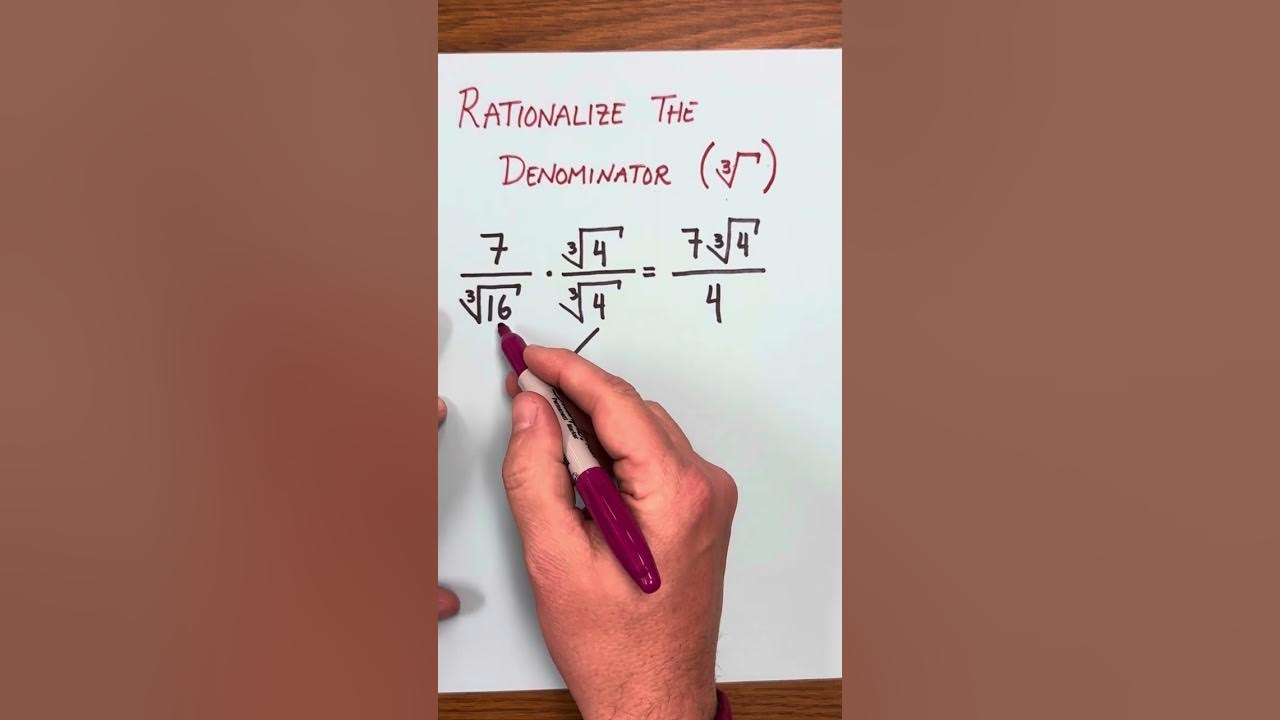 RATIONALIZE THE
DENOMINATOR (∛)
7/∛16 · ∛4/∛4 = 7∛4/4